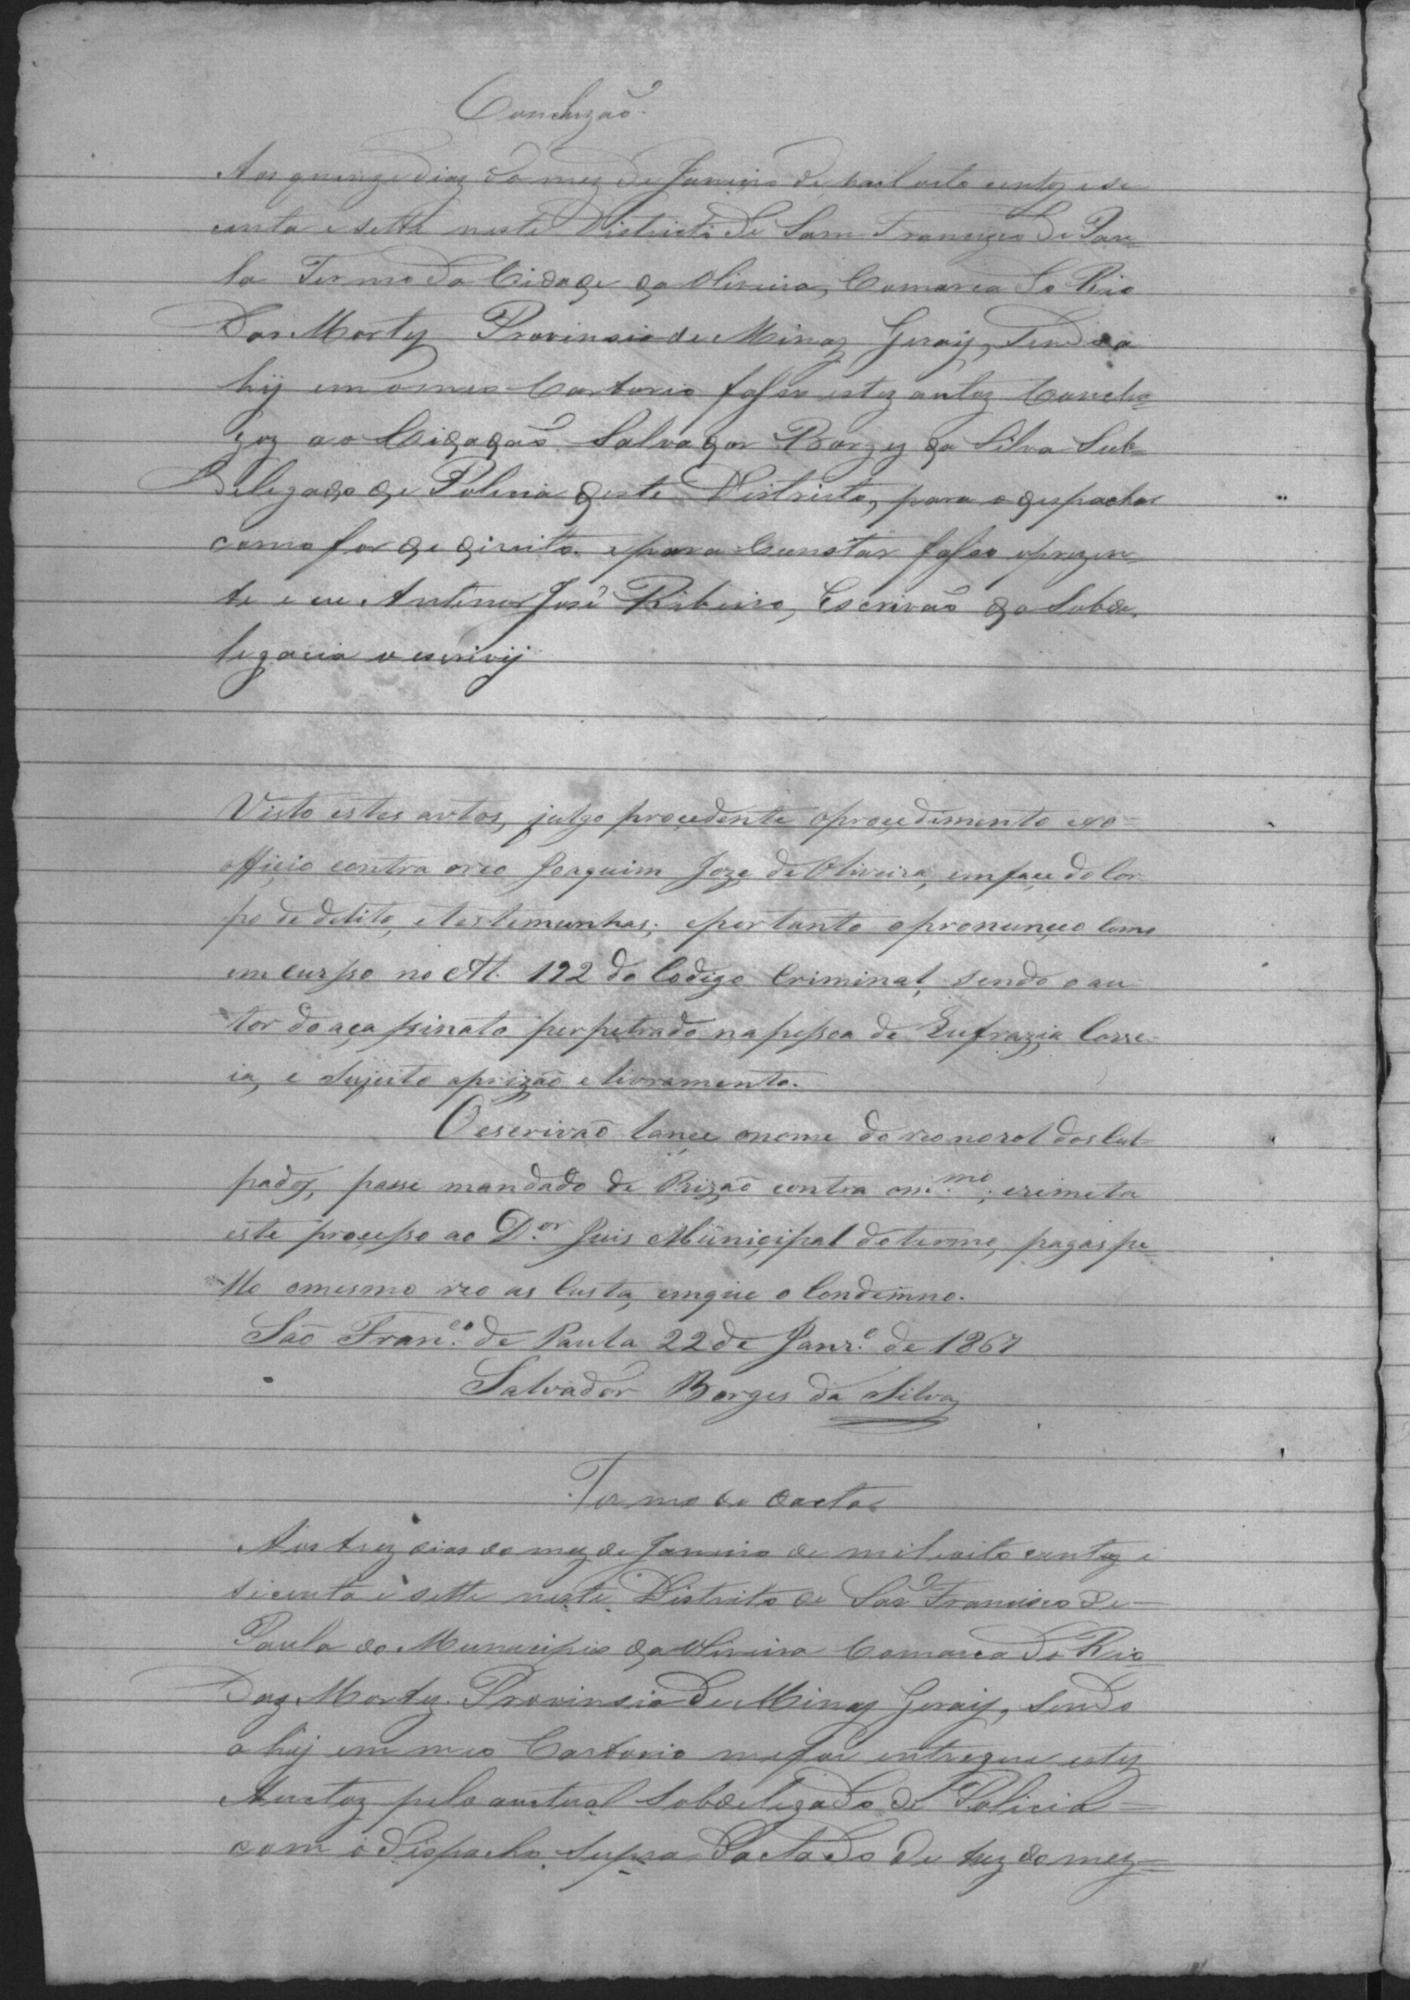 Concluzão.
Aos quinze diaz do mez de Janeiro de mil oito centoz e se
centa e sette neste Districto de Sam Francisco de Pau=
la Termo da Cidade da Oliveira, Comarca do Rio
Das Mortez Provinsia de Minaz Geraiz, sendo a
hÿ em o meo Cartorio fasso estez autoz Conclu=
zoz ao Cidadão Salvador Borgez da Silva Sub=
Delegado de Policia deste Districto, para o despachar
como for de direito. e para Constar fasso o prezen=
te e eu Antonio José Ribeiro, Escrivão da Subde.
legacia o escrivÿ
Visto estes autos, julgo procedente oprocedimento exo=
officio contra oreo Joaquim Joze de Oliveira, emface do Cor
po de delito, e testemunhas; eportanto opronuncio como
em curso no At. 192 do Codigo Criminal, sendo o au
tor do açassinato perpetrado na pessoa de Eufrazia Corre.
ia, e sujeito aprizão e livramento.
O escrivão lance onome do reo no rol dos Cul=
pados, passe mandado de Prizão contra om.mo; eremeta
este processo ao D.or Juis Municipal do termo, pagas pe=
llo omesmo reo as Custa, emque o Condemno.
São Fran.co de Paula 22 de Janr.o de 1867
Salvador Borges da Silva
Termo de dacta
Aos trez dias do mez de Janeiro de mil e oito centoz e
secenta e sette neste Distrito de São Francisco de=
Paula do Municipio da Oliveira Comarca do Rio
Daz Mortez Provinsia de Minaz Geraiz, sendo
a hÿ em meo Cartorio me foi entregue estez
Auctoz pelo auctual Sobdelegado de Policia=
com o dispacho supra Dactado de trez do mez=